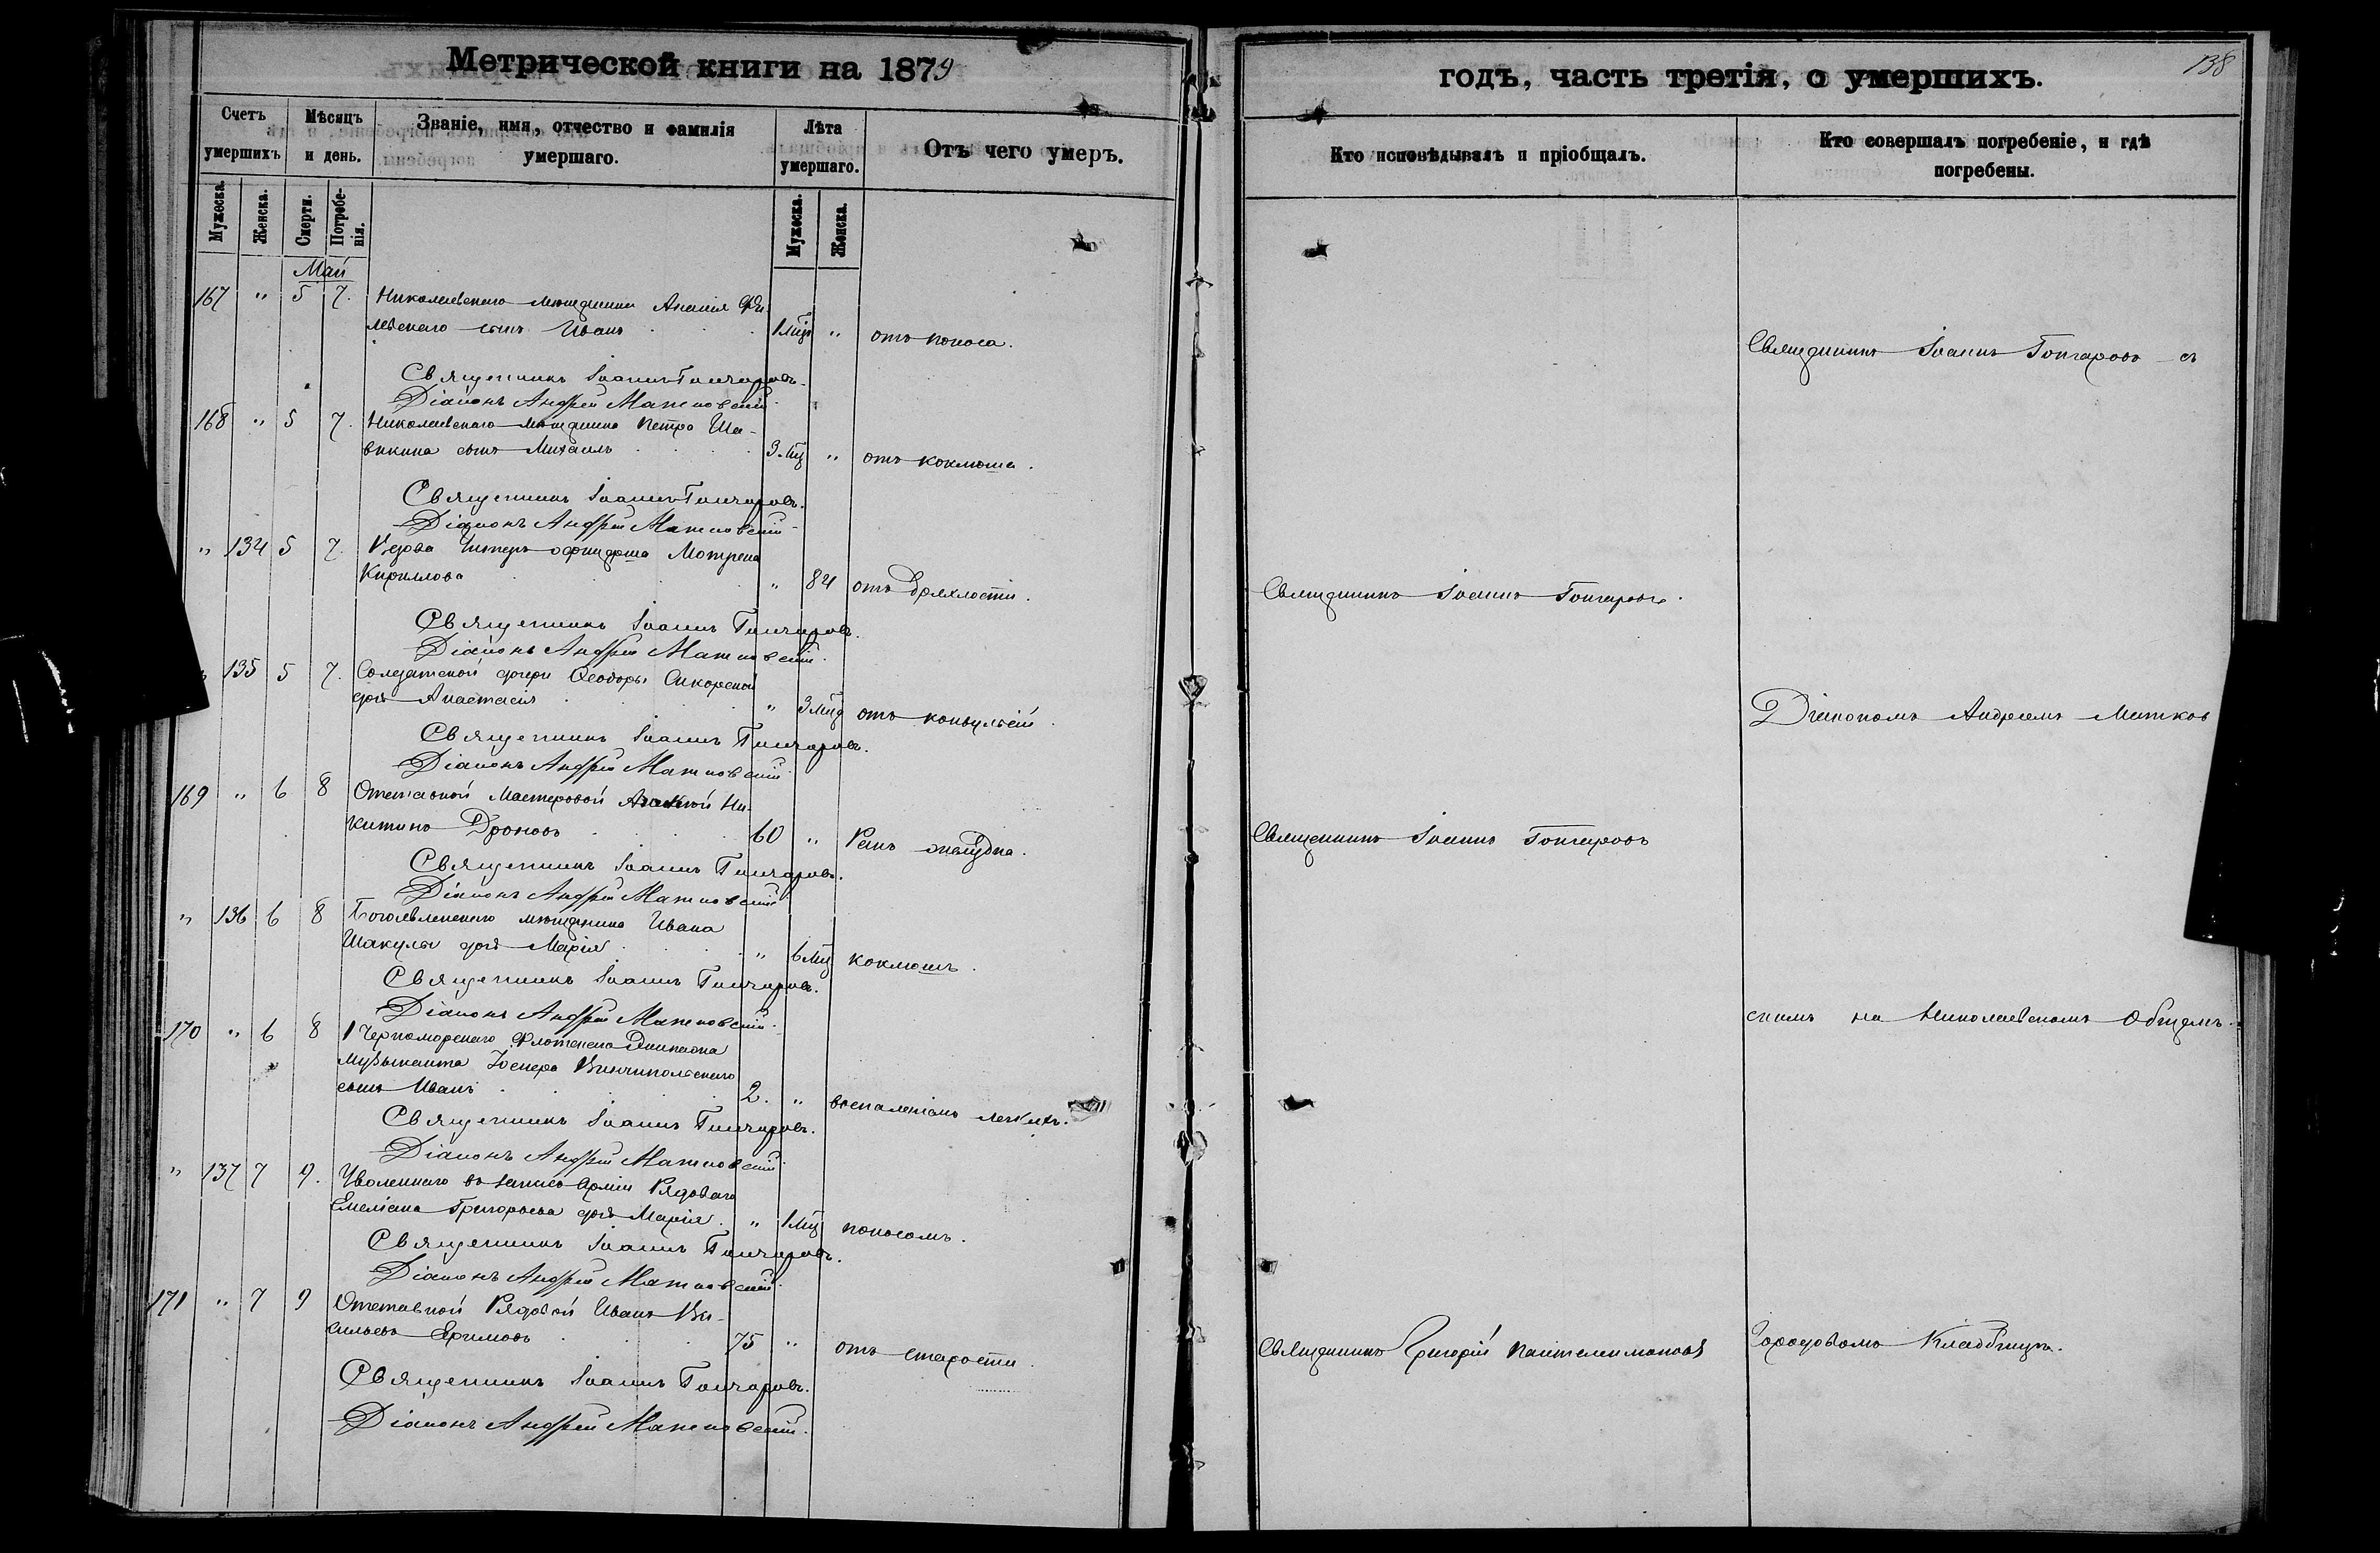 Метрической книги на 1879
годъ, часть третія, о умершихъ.
138
Счетъ умершихъ
Мѣсяцъ и день.
Званіе, имя, отчество и фамилія умершаго.
Лѣта умершаго.
Отъ чего умеръ.
Кто исповѣдывалъ и пріобщалъ.
Кто совершалъ погребеніе, и гдѣ погребены.
Мужеска.
Женска.
Смерти.
Погребенія.
Мужеска.
Женска.
Май
167 " 5 7. Николаевскаго мѣщанина Ананія
сынъ Иванъ 1 мц " отъ поноса.
Священникъ Іоаннъ Гончаровъ съ
Священникъ Іоаннъ Гончаровъ.
Діаконъ Андрей Матковскій
168 " 5 7. Николаевскаго мѣщанина Петра Ша-
сынъ Михаилъ 3 мц " отъ коклюша.
Священникъ Іоаннъ Гончаровъ.
Діаконъ Андрей Матковскій
" 134 5 7. Вдова Унтеръ-офицерша Мотрена
Кириллова " 84 отъ дряхлости. Священникъ Іоаннъ Гончаровъ.
Священникъ Іоаннъ Гончаровъ.
Діаконъ Андрей Матковскій.
" 135 5 7. Солдатской дочери Ѳеодоры Сикорской
дочь Анастасія " 3 мц отъ конвульсій. Діакономъ Андреемъ Матков
Священникъ Іоаннъ Гончаровъ.
Діаконъ Андрей Матковскій
169 " 6 8 Отставной Мастеровой Ни-
китинъ Дроновъ 60 " Ракъ желудка. Священникъ Іоаннъ Гончаровъ
Священникъ Іоаннъ Гончаровъ.
Діаконъ Андрей Матковскій
" 136 6 8 Богоявленскаго мѣщанина Ивана
Шакулы дочь Марія " 6 мц коклюшъ.
Священникъ Іоаннъ Гончаровъ.
Діаконъ Андрей Матковскій.
скимъ на Николаевскомъ Общемъ
170 " 6 8 1 Черноморскаго Флотскаго Экипажа
Музыканта
сынъ Иванъ 2. " воспаленіемъ легкихъ.
Священникъ Іоаннъ Гончаровъ.
Діаконъ Андрей Матковскій.
" 137 7 9. Уволеннаго въ запасъ Арміи Рядоваго
Емеліана Григорьева дочь Марія. " 1 мц поносомъ.
Священникъ Іоаннъ Гончаровъ.
Діаконъ Андрей Матковскій.
171 " 7 9 Отставной Рядовой Иванъ Ва-
сильевъ Ефимовъ 75 " отъ старости. Священникъ Григорій Пантелеимоновъ Городовомъ Кладбищѣ.
Священникъ Іоаннъ Гончаровъ.
Діаконъ Андрей Матковскій.